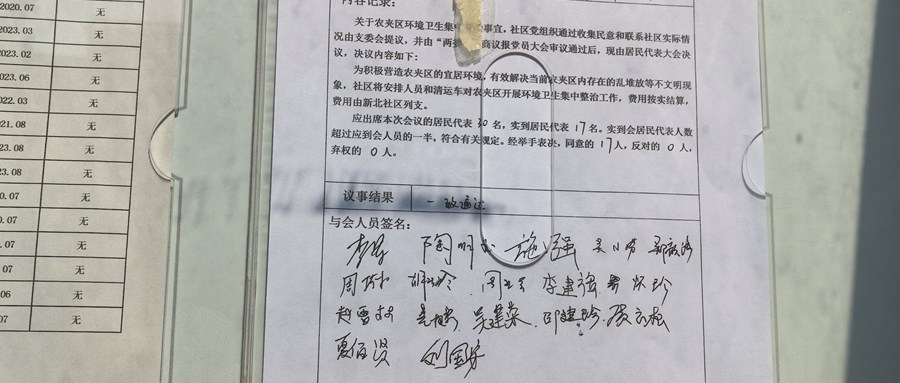 2020.07 无
2023.03 无
2023.02 无
2023.06 无
2022.03 无
2021.08 无
2023.08 无
023.08 无
0.07 无
0.07 无
.07 无
.07 无
.06 无
07 无
内容记录：
关于农夹区环境卫生集中事宜，社区党组织通过收集民意和联系社区实际情
况由支委会提议，并由“两委”商议报党员大会审议通过后，现由居民代表大会决
议，决议内容如下：
为积极营造农夹区的宜居环境，有效解决当前农夹区内存在的乱堆放等不文明现
象，社区将安排人员和清运车对农夹区开展环境卫生集中整治工作，费用按实结算，
费用由新北社区列支。
应出席本次会议的居民代表 30 名，实到居民代表 17 名。实到会居民代表人数
超过应到会人员的一半，符合有关规定。经举手表决，同意的 17 人，反对的 0 人，
弃权的 0 人。
议事结果 一致通过
与会人员签名：
陶明 施强
周 李建 珍
赵雪 吴建荣 邱建珍
夏伯贤 刘国芳